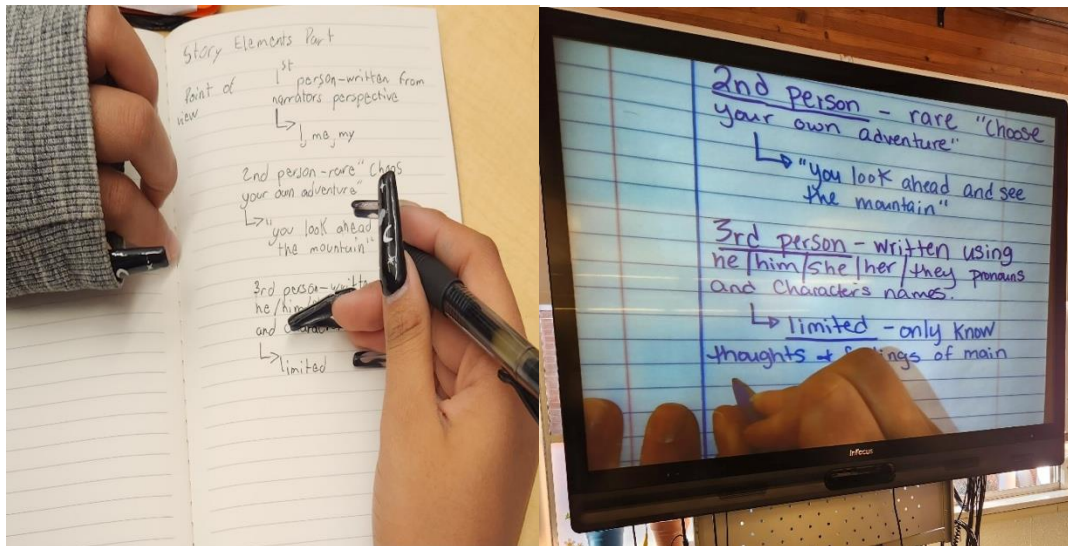 Story Elements Part
Point of
view
1st person-written from
narrators perspective
I, me, my
2nd person-rare "Choos
your own adventure"
"you look ahead
the mountain"
3rd person-writt
he/him/
and
limited
2nd person - rare "Choose
your own adventure"
"You look ahead and see
the mountain"
3rd person - written using
he/him/she/her/they pronouns
and characters names.
limited - only know
thoughts & feelings of main
InFocus